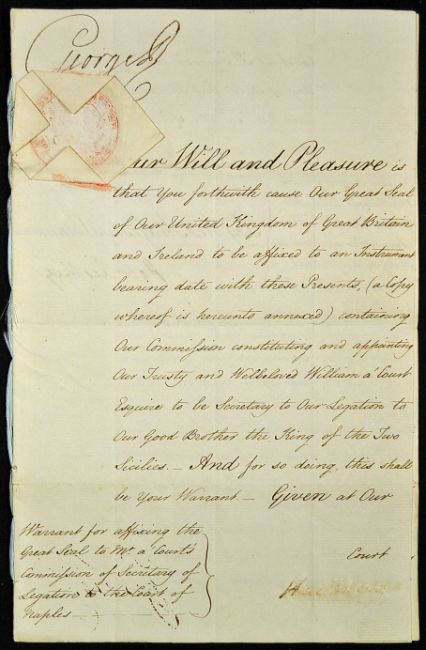 George R
Our Will and Pleasure is
that You forthwith cause Our Great Seal
of Our United Kingdom of Great Britain
and Ireland to be affixed to an Instrument
bearing date with these Presents, (a Copy
whereof is hereunto annexed) containing
Our Commission constituting and appointing
Our Trusty and Wellbeloved William a'Court
Esquire to be Secretary to Our Legation to
Our Good Brother the King of the Two
Sicilies. — And for so doing, this shall
be Your Warrant. — Given at Our
Court
Warrant for affixing the
Great Seal to Mr. a Court's
Commission of Secretary of
Legation to the Court of
Naples —